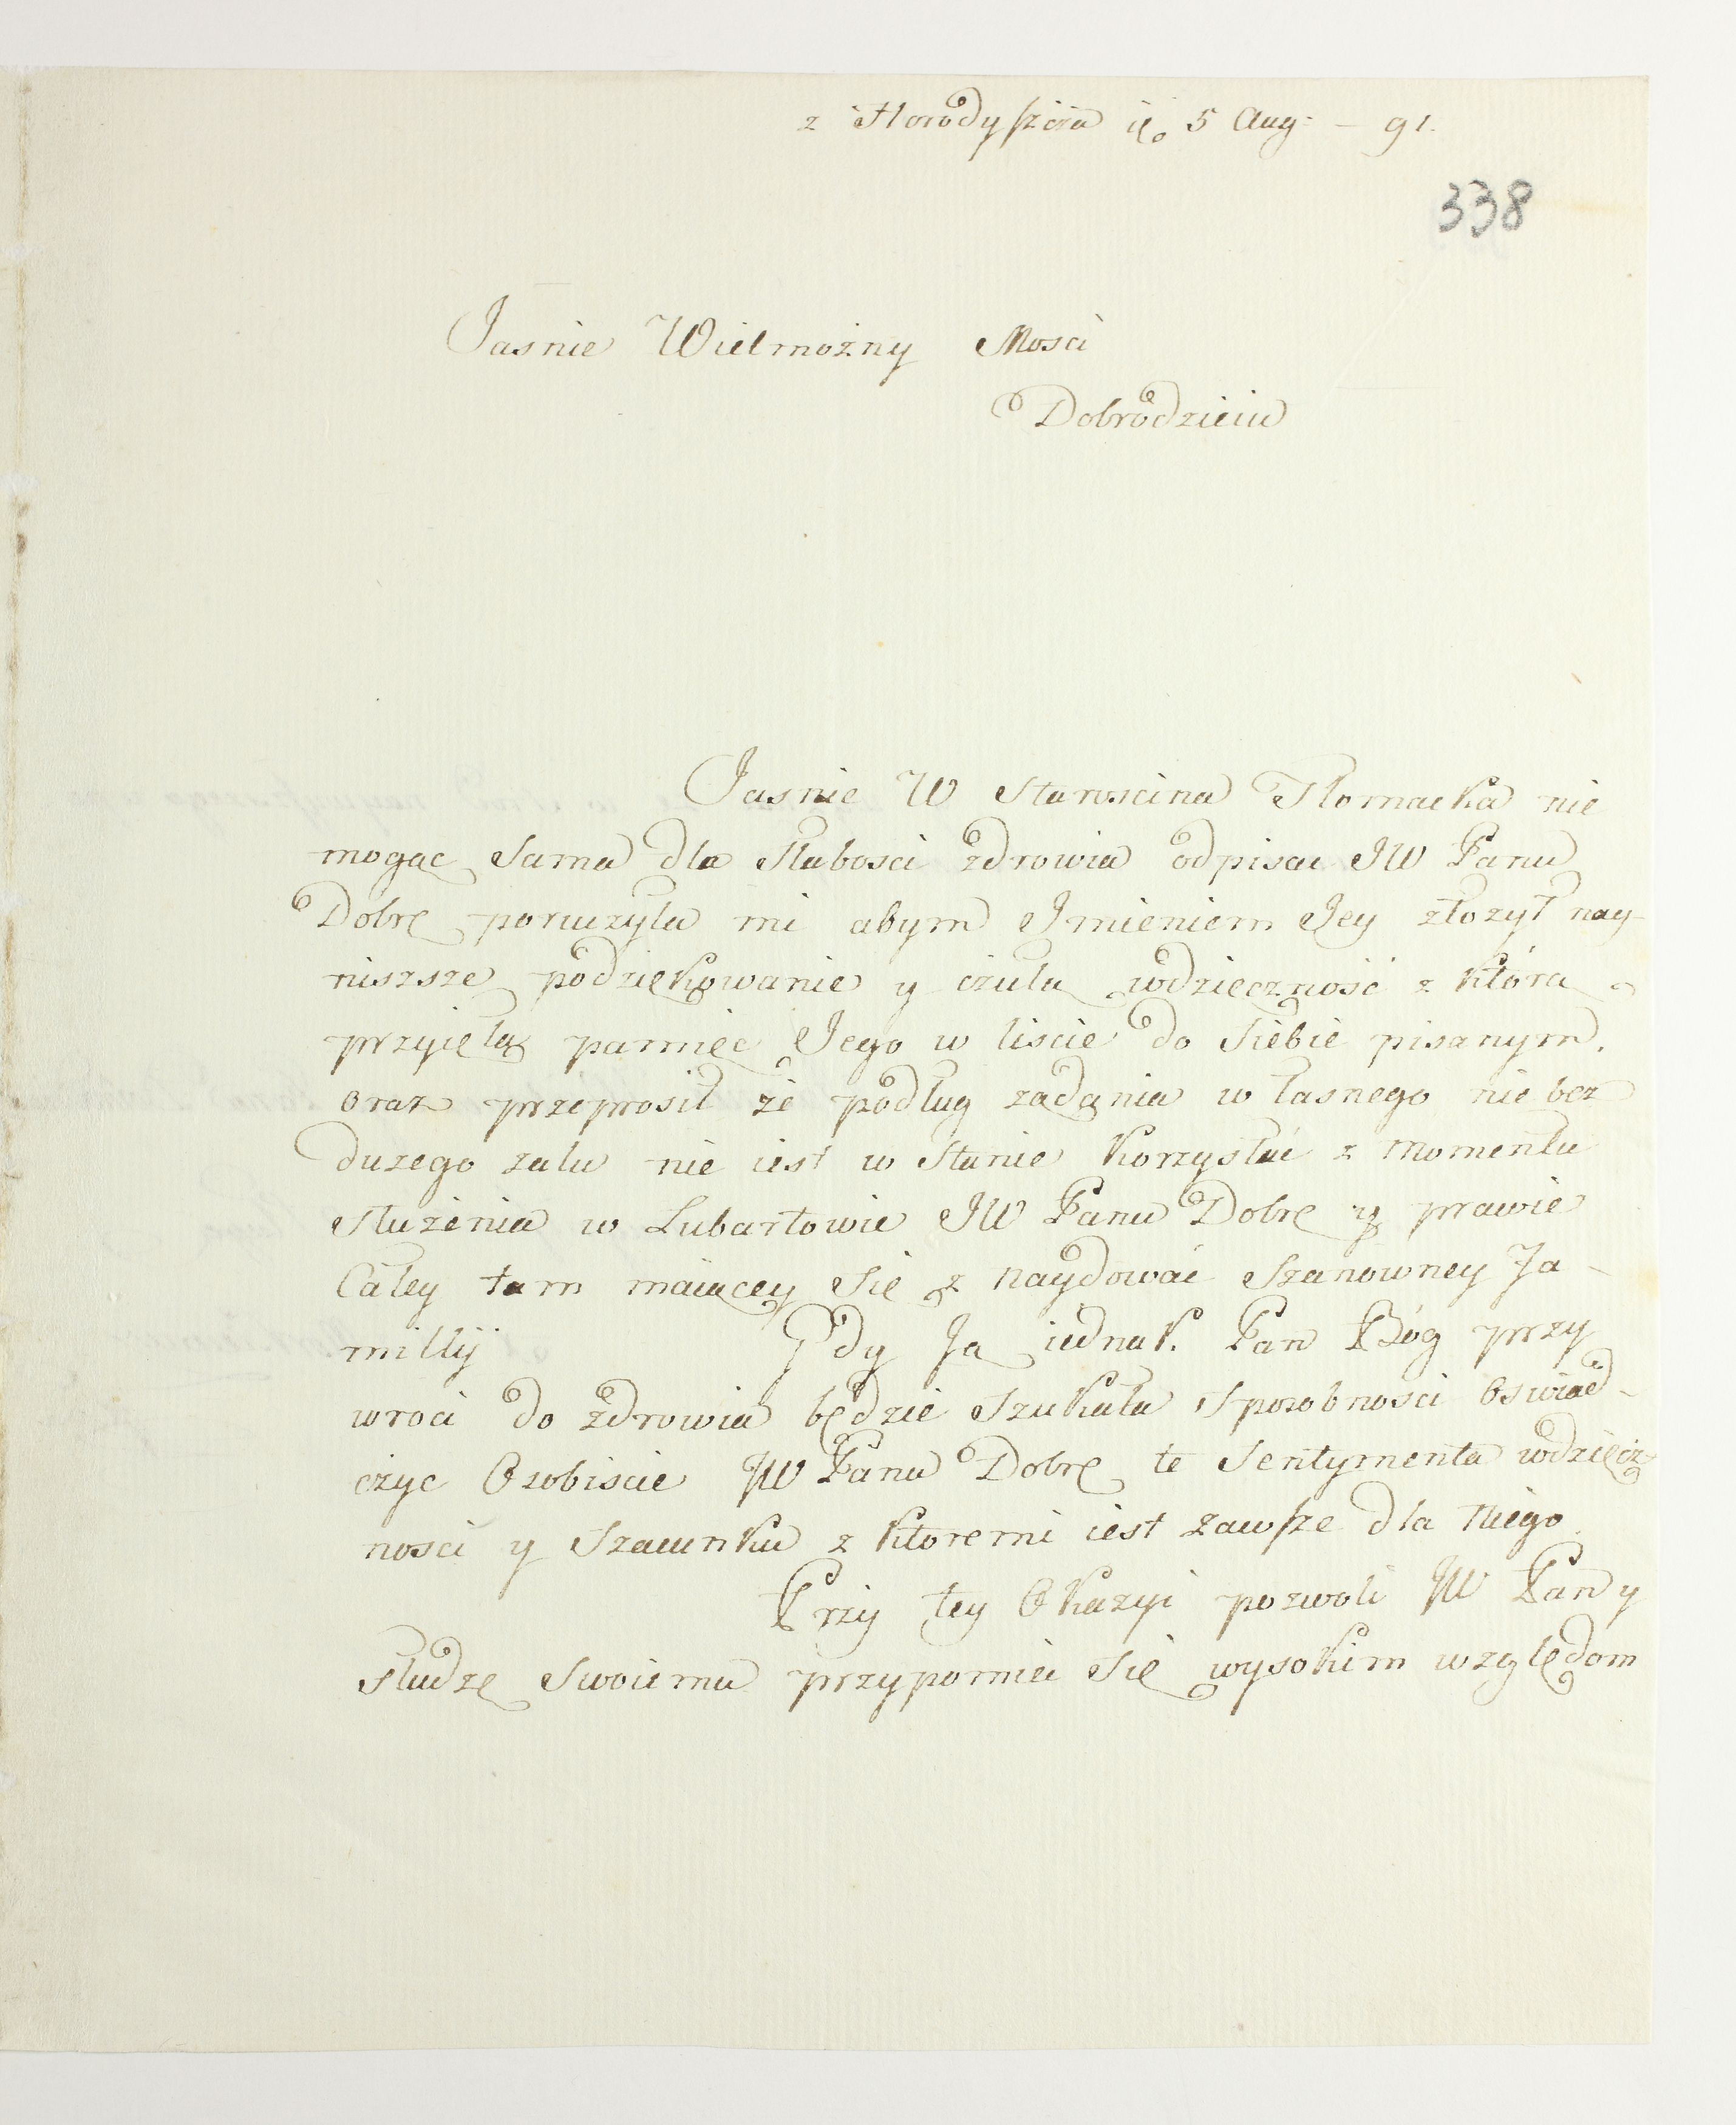 z Horodyszcza 5 Aug: – 91.
338
Jasnie Wielmożny Mosci
Dobrodzieiu
Jasnie W Starościna Tłomacka nie
mogąc Sama dla Słabosci zdrowia odpisac JW Panu
Dobrę poruczyła mi abym Jmieniem Jey złożył nay-
niszsze podziękowanie y czułą wdzięczność z którą
przyięła pamięc Jego w liscie do Siebie pisanym.
oraz przeprosił że podług ządania własnego nie bez
duzego zalu nie iest w Stanie korzystać z Momentu
Służenia w Lubartowie JW Panu Dobrę y prawie
Całey tam maiącey Się znaydować Szanowney Fa-
milij Gdy Ją iednak Pan Bóg przy
wroci do zdrowia będzie Szukała Sposobnosci Oswiad-
czyc Osobiscie JW Panu Dobrę te Sentymenta wdzięcz
nosci y Szacunku z ktoremi iest zawsze dla Niego
Przy tey Okazyi pozwoli JW Pan y
słudze Swoiemu przypomniec Się wysokim względom